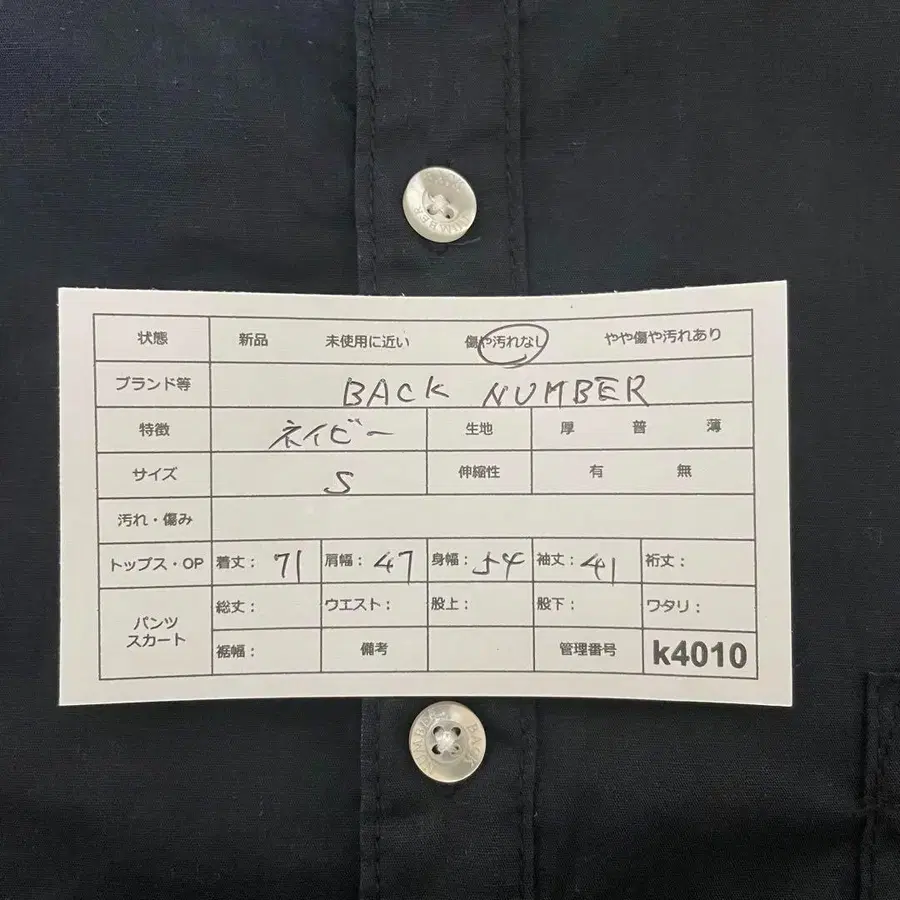 BACK NUMBER
状態 新品 未使用に近い 傷や汚れなし やや傷や汚れあり
ブランド等 BACK NUMBER
特徴 ネイビー 生地 厚 普 薄
サイズ S 伸縮性 有 無
汚れ・傷み
トップス・OP 着丈: 71 肩幅: 47 身幅: 54 袖丈: 41 裄丈:
パンツ スカート 総丈: ウエスト: 股上: 股下: ワタリ:
裾幅: 備考 管理番号 k4010
BACK NUMBER